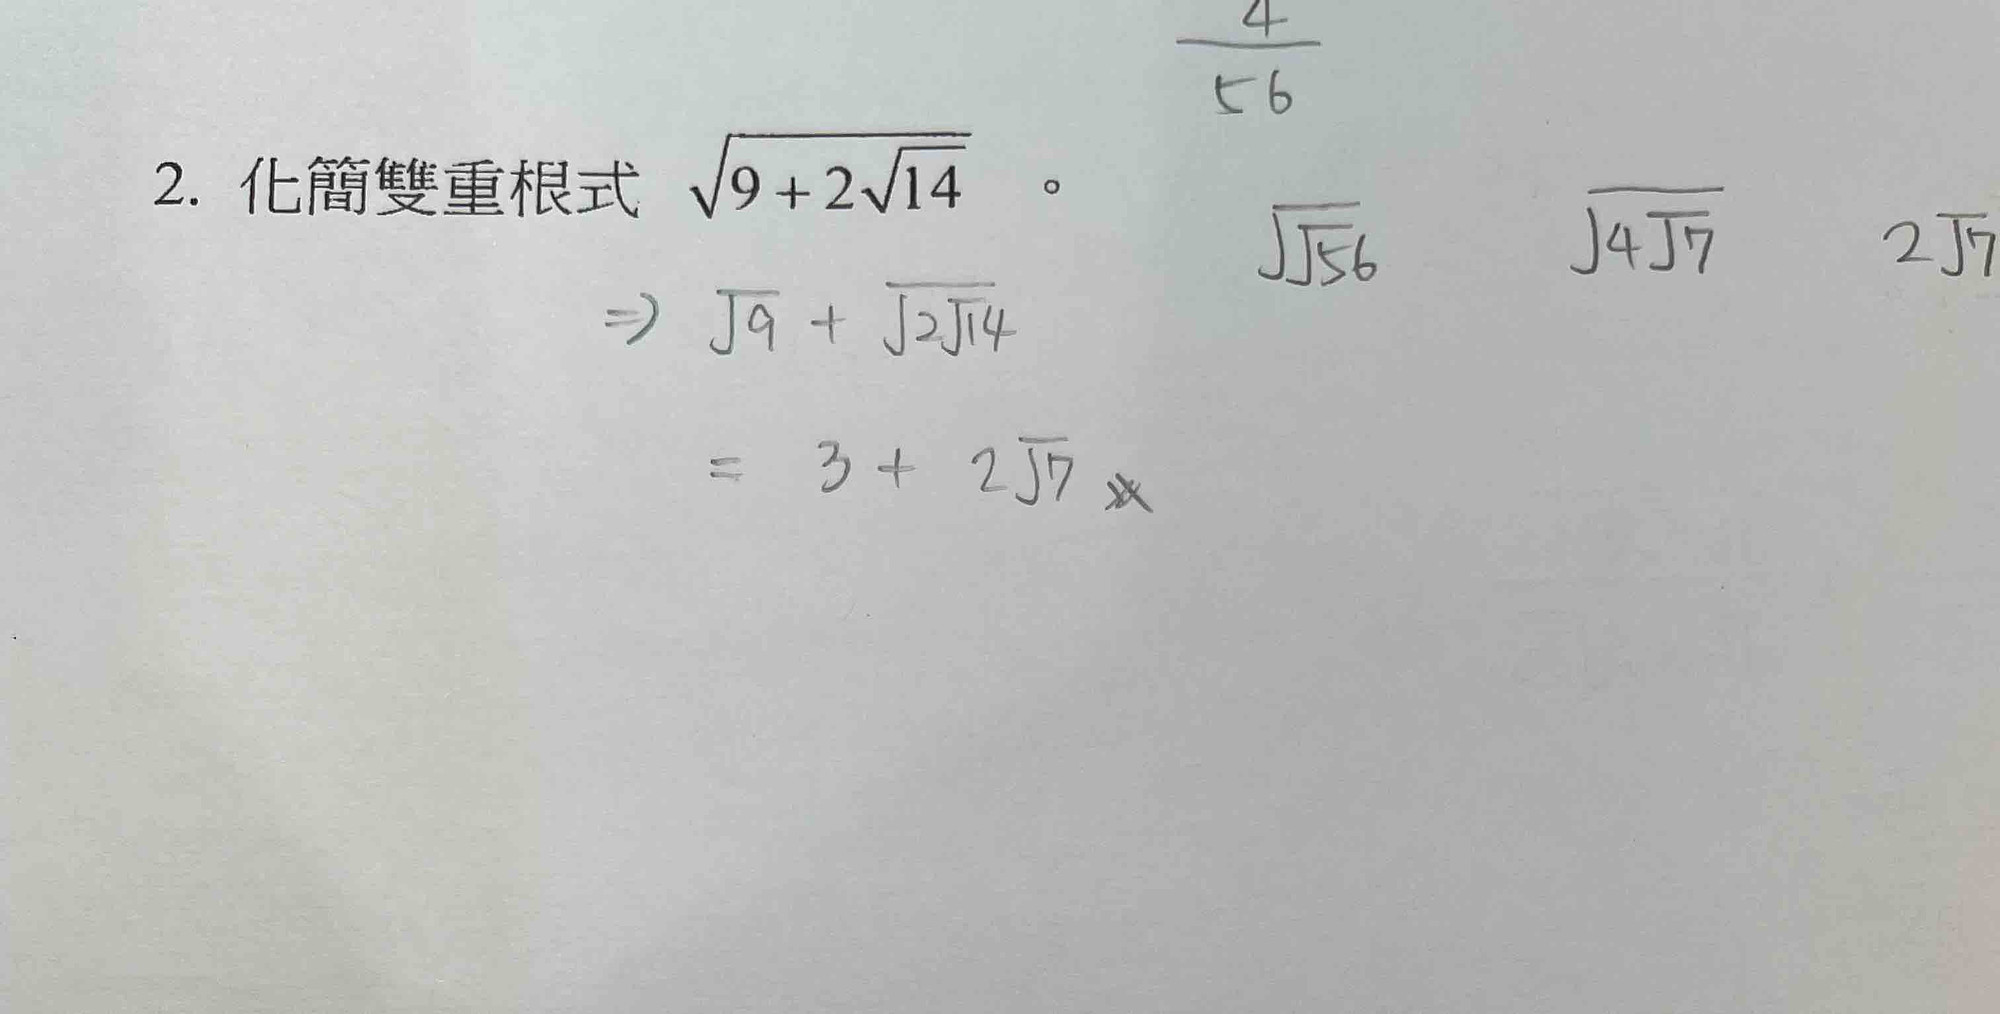 4
56
2. 化簡雙重根式 √(9+2√14) 。
√√56 √(4√7) 2√7
⇒ √9 + √(2√14)
= 3 + 2√7